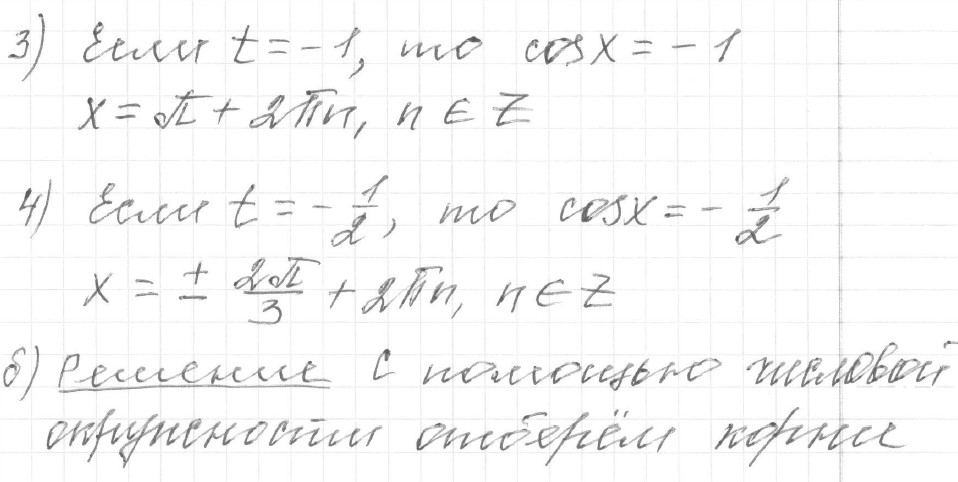 3) Если t = -1, то cosx = -1
x = π + 2πn, n ∈ Z
4) Если t = -1/2, то cosx = -1/2
x = ± 2π/3 + 2πn, n ∈ Z
б) Решение С помощью числовой
окружности отберём корни